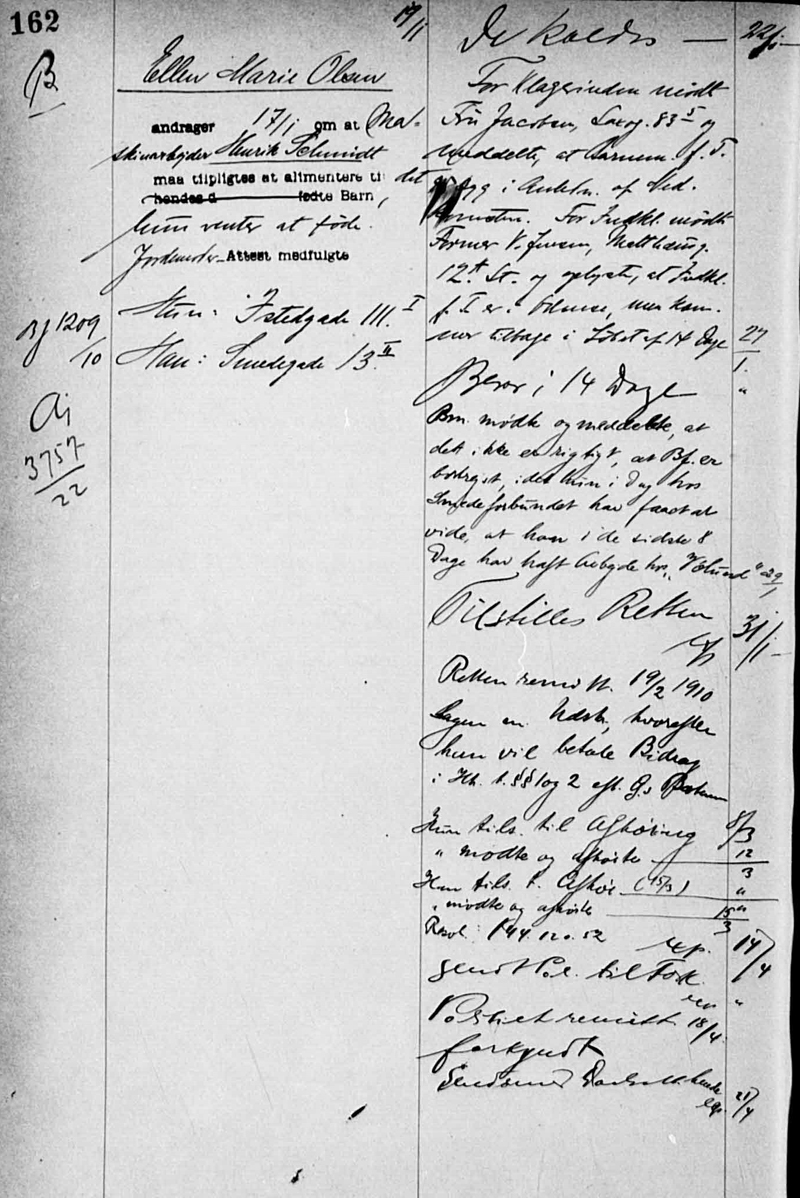 162
B
Ellen Marie Olsen
andrager 17/1 om at Ma-
skinarbejder Henrik Schmidt
maa tilpligtes at alimentere ti: det
hendes d fødte Barn,
hun venter at føde.
Jordemoder-Attest medfulgte
Hun: Istedgade 111. I
Han: Smedegade 13. II
Bj 1209
/10
Aj
3757
22
19/11
De kaldes — 22/1
For Klagerinden mødt
Fru Jacobsen, 83 5 og
meddelte, at Barnem. f. T.
i Anledn. af Ned-
komsten. For Indkl. mødt
Former V. Jensen,
12 A St. og oplyste, at Indkl.
f. T. er i men kom-
mer tilbage i Løbet af 14 Dage 27/1.
Beror i 14 Dage "
Bm. mødte og meddelte, at
det ikke er rigtigt, at Bf. er
bortrejst, idet hun i Dag hos
Smedeforbundet har faaet at
vide, at han i de sidste 8
Dage har haft Arbejde hos „Vølund" 29/1
Tilstilles Retten 31/1
Retten remitt. 19/2 1910
Sagen m. Udskr., hvorefter
han vil betale Bidrag
i Hh. t. §§ 1 og 2 eft. G.s
Hun tils. til Afhøring 8/3
" mødte og afhørtes 12/3
Han tils. t. Afhør. (15/3) "
" mødte og afhørtes 15/3
Resol: 144. 120. 52 exp. 14/4
sendt Pol. til Fork. "
Politiet remitt 18/4
forkyndt
21/4